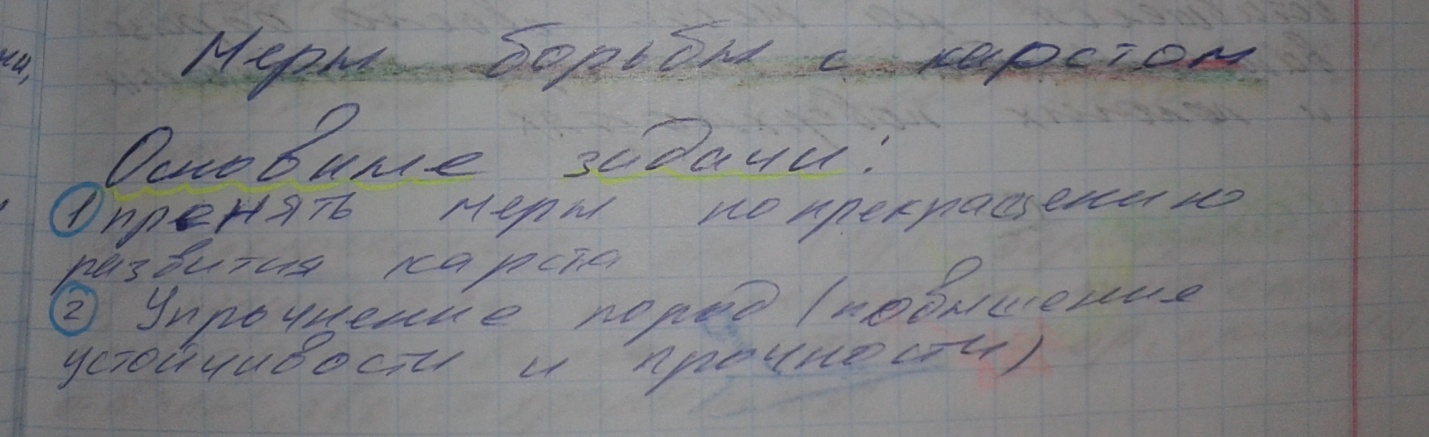 Меры борьбы с карстом
Основные задачи:
1 принять меры по прекращению
развития карста
2 Упрочнение пород (повышение
устойчивости и прочности)